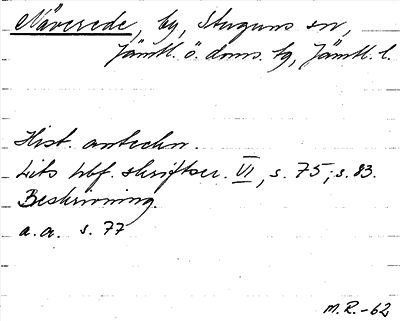 Näverede, by, Stuguns sn,
Jämtl. ö. doms. tg, Jämtl. l.
Hist. anteckn.
Lits hbf. skriftser. VI, s. 75; s. 83.
Beskrivning.
a.a. s. 77
M.R.-62